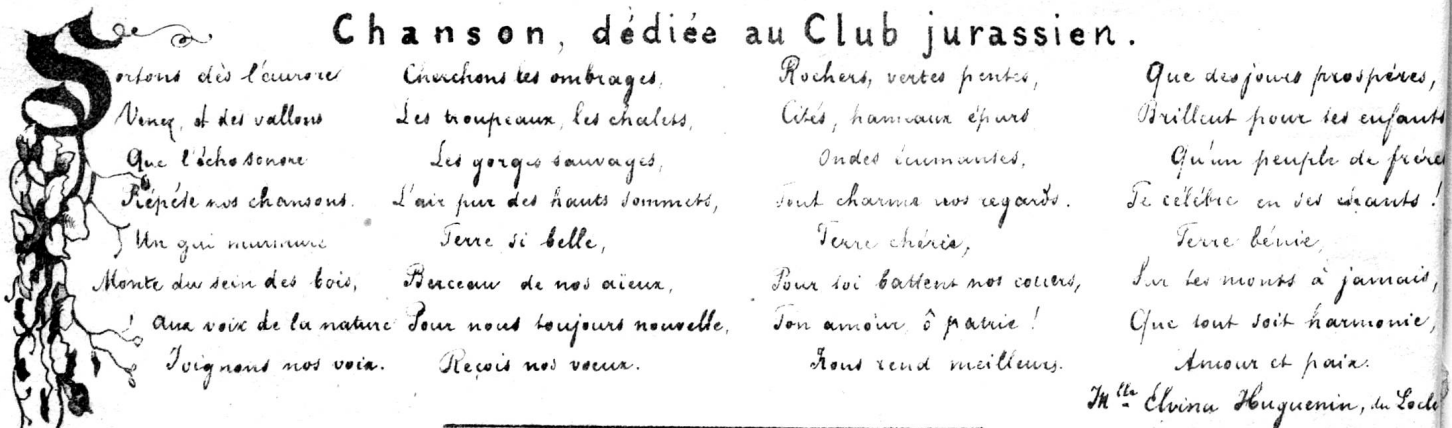 Chanson, dédiée au Club jurassien.
Sortons dès l'aurore
Venez, et des vallons
Que l'écho sonore
Répète nos chansons.
Un gai murmure
Monte du sein des bois,
Aux voix de la nature
Joignons nos voix.
Cherchons les ombrages,
Les troupeaux, les chalets,
Les gorges sauvages,
L'air pur des hauts sommets,
Terre si belle,
Berceau de nos aïeux,
Pour nous toujours nouvelle,
Reçois nos voeux.
Rochers, vertes pentes,
Cités, hameaux épars
Ondes écumantes,
Tout charme nos regards.
Terre chérie,
Pour toi battent nos coeurs,
Ton amour, ô patrie !
Nous rend meilleurs.
Que des jours prospères,
Brillent pour tes enfants
Qu'un peuple de frères
Te célèbre en ses chants !
Terre bénie,
Sur tes monts à jamais,
Que tout soit harmonie,
Amour et paix.
Mlle Elvina Huguenin, du Locle